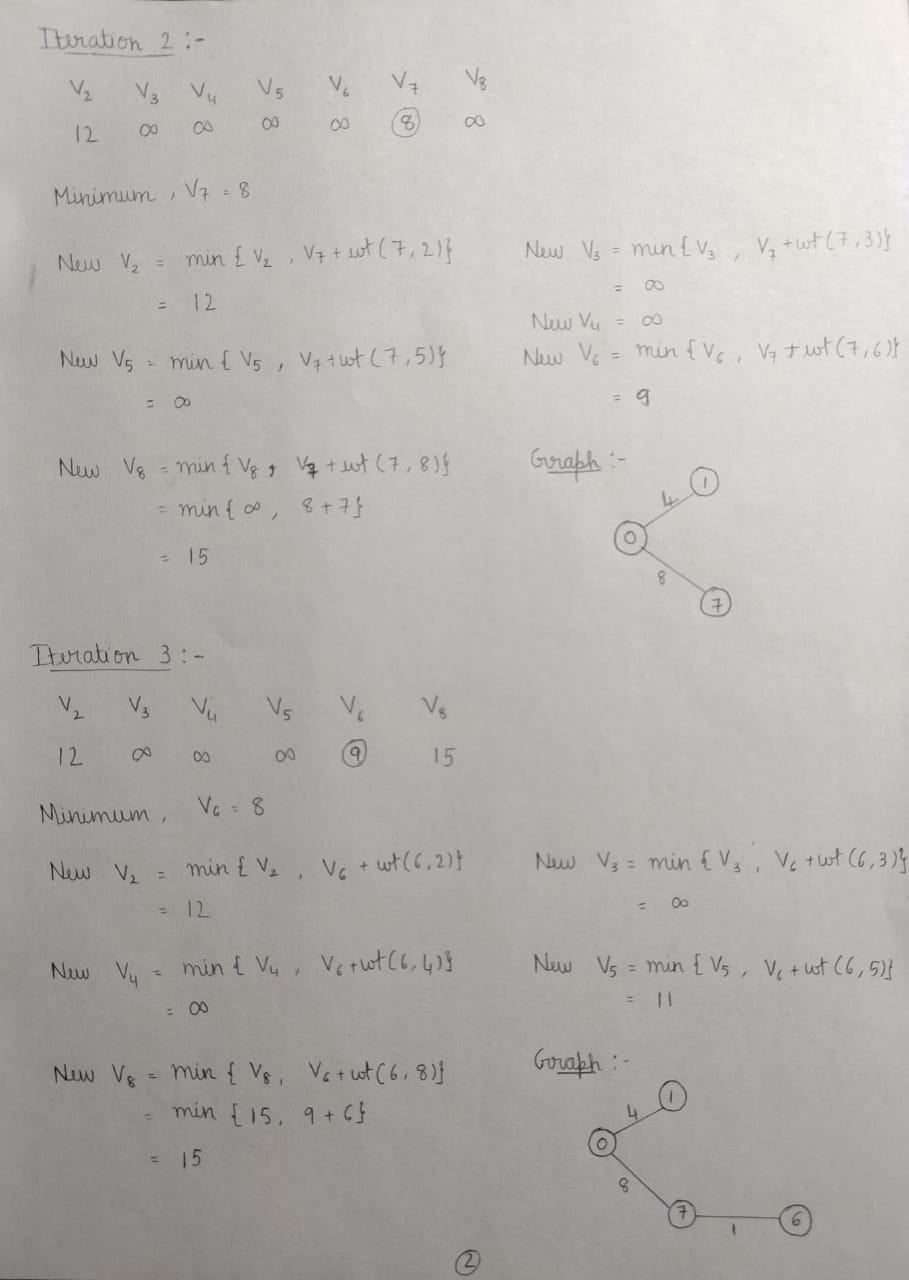 Iteration 2 :-
V₂ V₃ V₄ V₅ V₆ V₇ V₈
12 ∞ ∞ ∞ ∞ 8 ∞
Minimum , V₇ = 8
New V₂ = min { V₂ , V₇ + wt (7,2)}
= 12
New V₃ = min { V₃ , V₇ + wt (7,3)}
= ∞
New V₄ = ∞
New V₅ = min { V₅ , V₇ + wt (7,5)}
= ∞
New V₆ = min { V₆ , V₇ + wt (7,6)}
= 9
New V₈ = min { V₈ , V₇ + wt (7,8)}
= min { ∞ , 8 + 7}
= 15
Graph :-
1
4
0
8
7
Iteration 3 :-
V₂ V₃ V₄ V₅ V₆ V₈
12 ∞ ∞ ∞ 9 15
Minimum , V₆ = 8
New V₂ = min { V₂ , V₆ + wt (6,2)}
= 12
New V₃ = min { V₃ , V₆ + wt (6,3)}
= ∞
New V₄ = min { V₄ , V₆ + wt (6,4)}
= ∞
New V₅ = min { V₅ , V₆ + wt (6,5)}
= 11
New V₈ = min { V₈ , V₆ + wt (6,8)}
= min { 15 , 9 + 6}
= 15
Graph :-
1
4
0
8
7 1 6
2